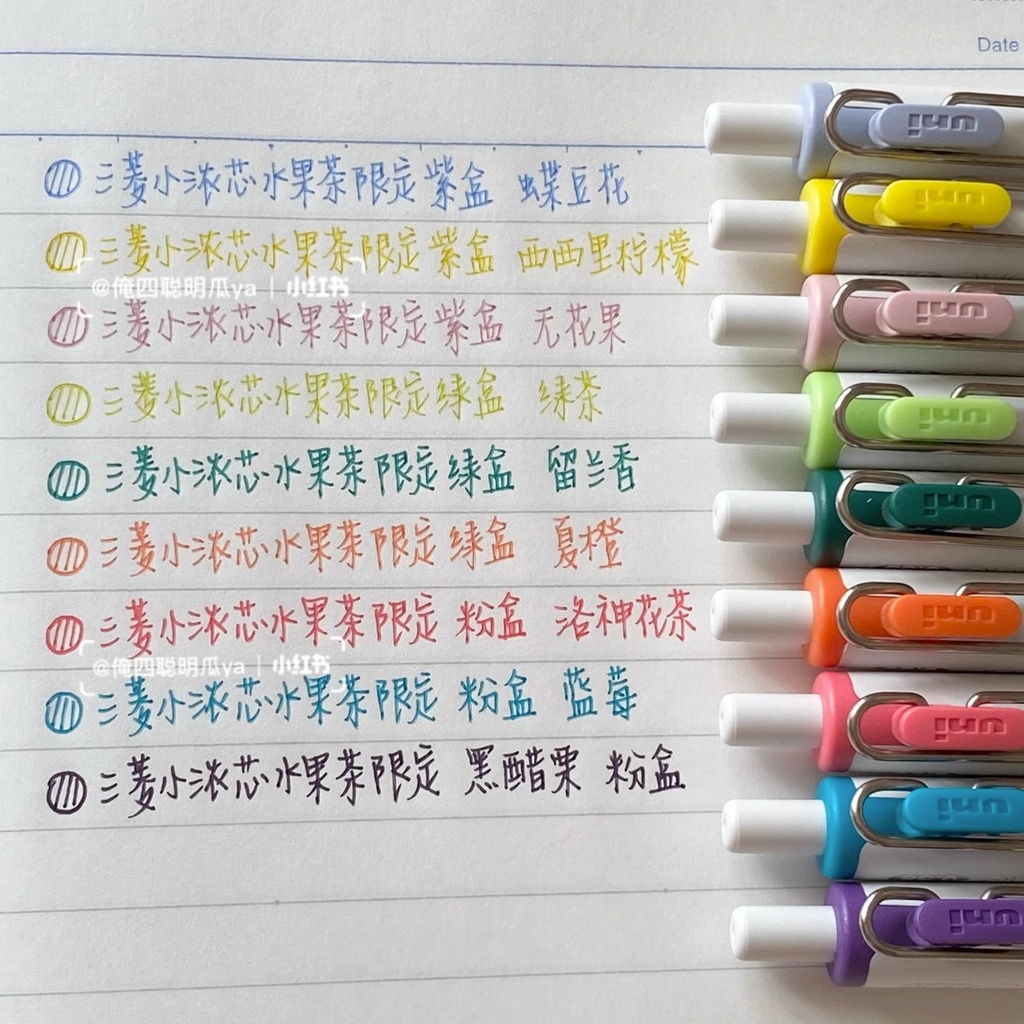 Date
三菱小浓芯水果茶限定紫盒 蝶豆花
三菱小浓芯水果茶限定紫盒 西西里柠檬
@俺四聪明瓜ya | 小红书
三菱小浓芯水果茶限定紫盒 无花果
三菱小浓芯水果茶限定绿盒 绿茶
三菱小浓芯水果茶限定绿盒 留兰香
三菱小浓芯水果茶限定绿盒 夏橙
三菱小浓芯水果茶限定 粉盒 洛神花茶
@俺四聪明瓜ya | 小红书
三菱小浓芯水果茶限定 粉盒 蓝莓
三菱小浓芯水果茶限定 黑醋栗 粉盒
uni
uni
uni
uni
uni
uni
uni
uni
uni